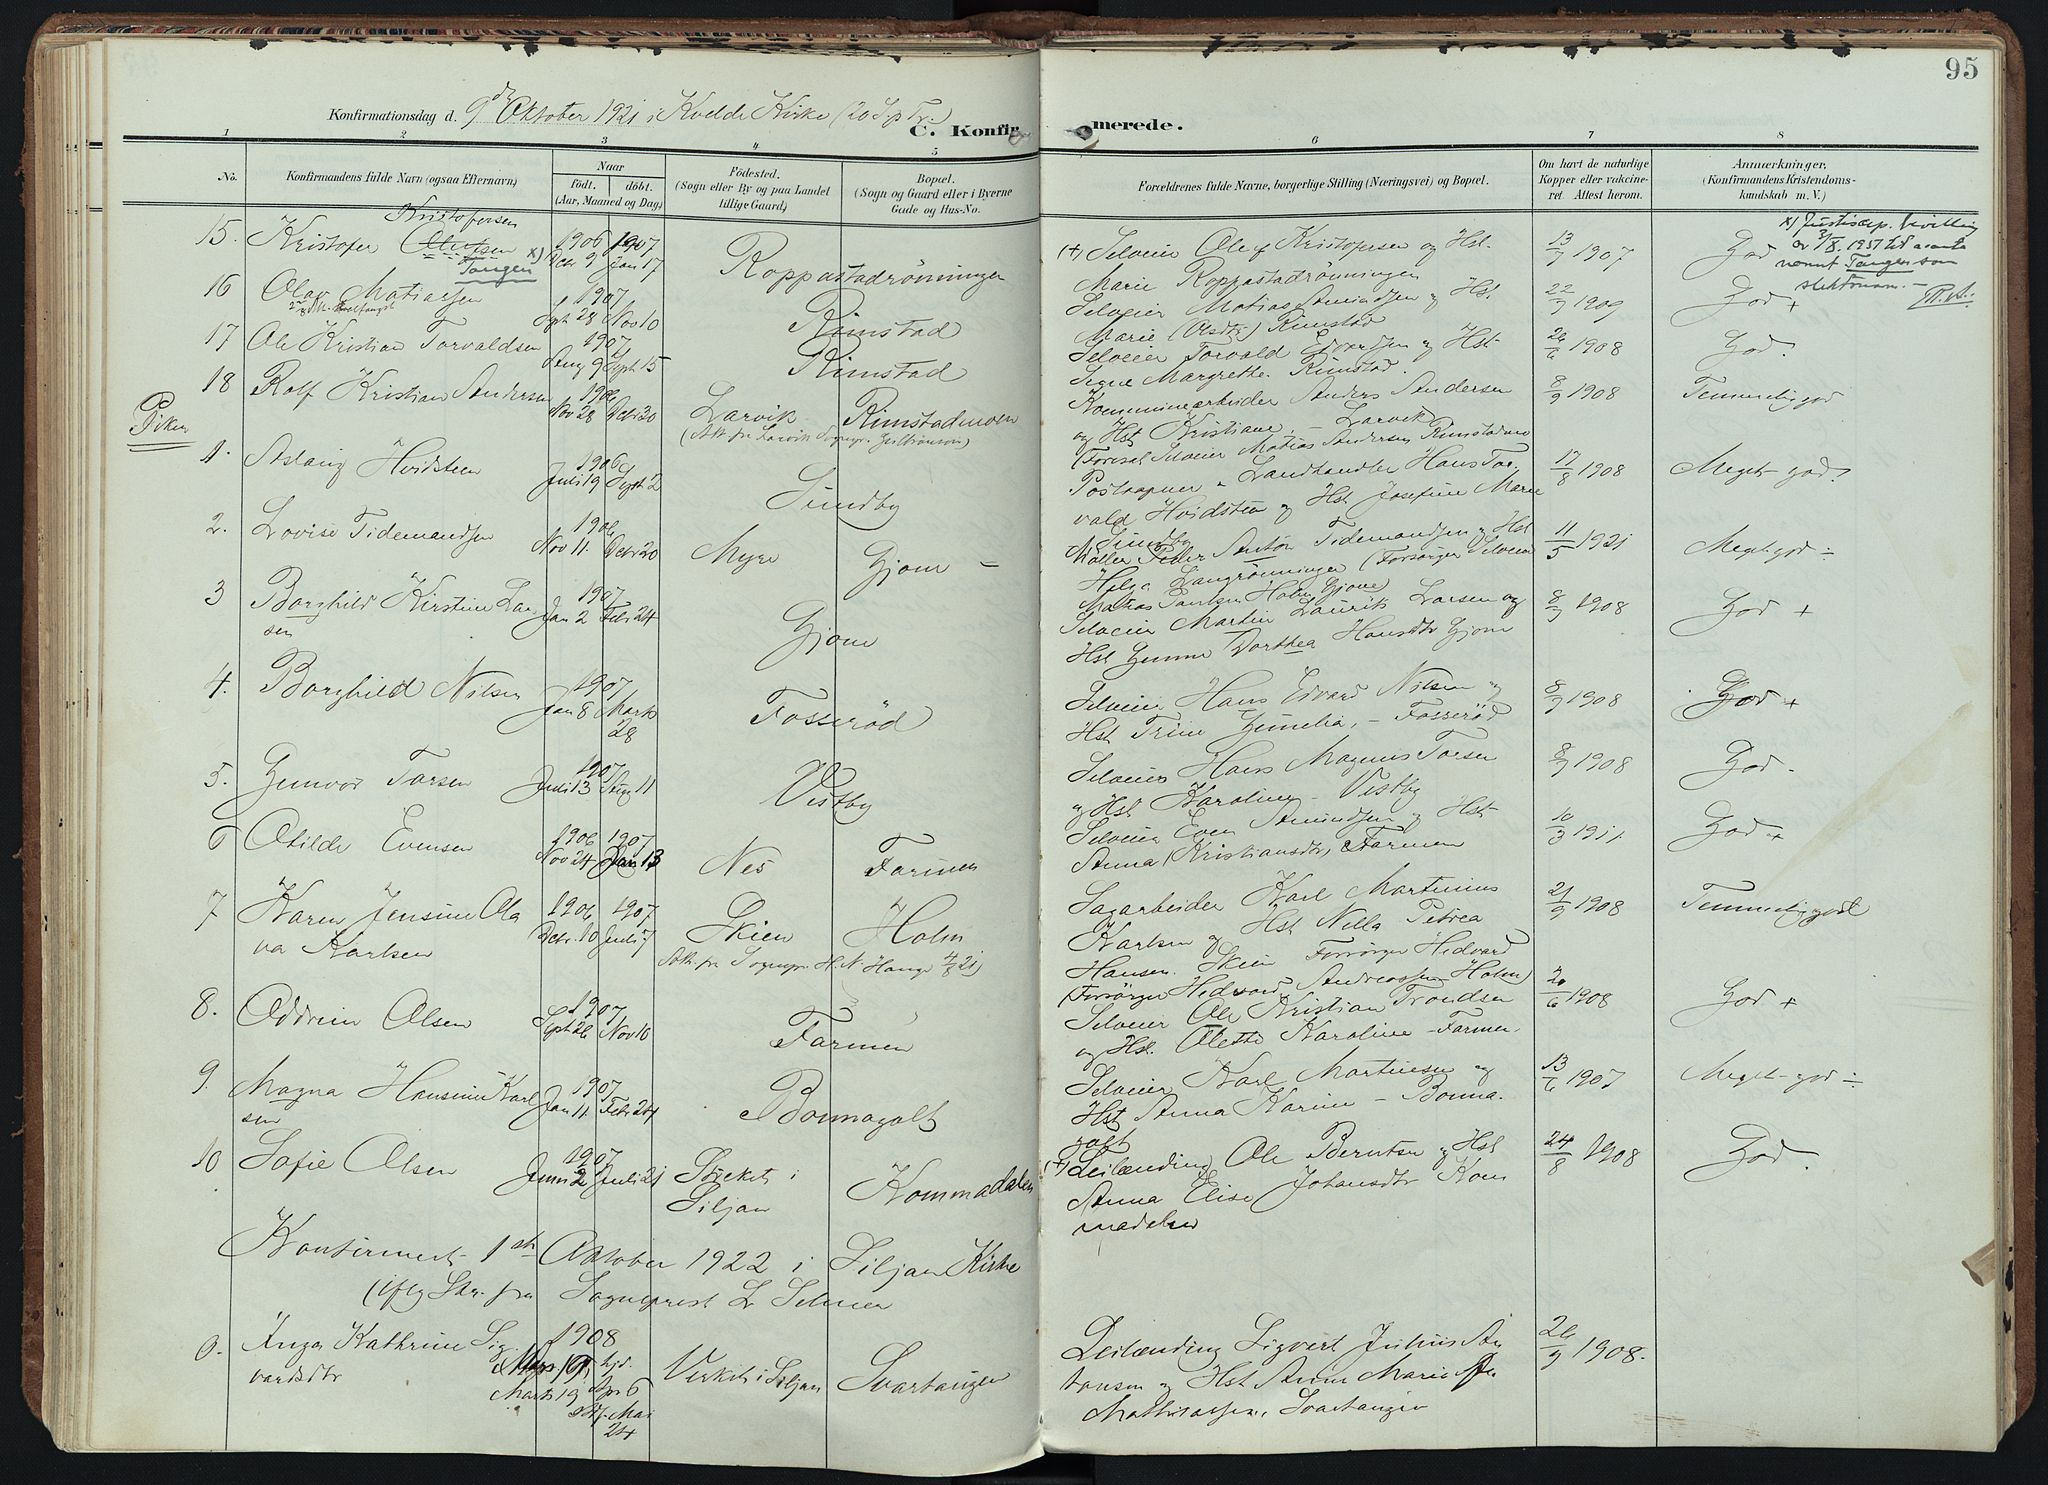 95
Konfirmationsdag d. 9de Oktober 1921 i Kvelde Kirke (20 S. p. Tr.)
C. Konfirmerede.
1 2 3 4 5 6 7 8
No. Konfirmandens fulde Navn (ogsaa Efternavn)
Naar
født. døbt.
(Aar, Maaned og Dag)
Fødested.
(Sogn eller By og paa Landet
tillige Gaard)
Bopæl.
(Sogn og Gaard eller i Byerne
Gade og Hus-No.
Forældrenes fulde Navne, borgerlige Stilling (Næringsvei) og Bopæl.
Om havt de naturlige
Kopper eller vakcine-
ret. Attest herom.
Anmærkninger,
(Konfirmandens Kristendoms-
kundskab m. V.)
Kristofersen
15. Kristofer Olufsen x) 1906 Dcbr 9 1907 Jan 17 Roppestadrönningen
Tangen
(+) Selveier Oluf Kristofersen og Hst.
Marie Roppestadrönningen
13/7 1907 God
x) Justisdep. bevilling
av 3/8 1951 til a anta
nevnt Tangen som
slektsnavn. –
16 Olav Matiassen 1907 Sept 28 Nov 10 Rimstad
Selveier Matias Amundsen og Hst.
Marie (Olsdtr) Rimstad
22/9 1909 God +
17 Ole Kristian Torvaldsen 1907 Aug 9 Sept 15 Rimstad
Selveier Torvald Edvardsen og Hst.
Signe Margrethe. Rimstad.
26/6 1908 God.
18 Rolf Kristian Andersen 1906 Nov 28 Dcbr 30 Larvik Rimstadmoen
(Att. fra Larvik Sognepr.
Kommunearbeider Anders Andersen
og Hst Kristiane. – Larvik
(Foresat Selveier Matias Andersen Rimstadmoen
8/9 1908 Temmelig god
Piker
1. Aslaug Hvidsteen 1906 Juli 19 Sept 2 Sundby
Postaapner & Landhandler Hans Tor-
vald Hvidsten og Hst Josefine Marie
Sundby
17/8 1908 Meget god.
2. Lovise Tidemandsen 1906 Nov 11. Dcbr 20 Myre Gjone –
Møller Peder Anton Tidemandsen og Hst
Helga Langrönningen (Forsørger Selveier
Matias Paulsen Holm Gjone)
11/5 1921 Meget god ÷
3 Borghild Kirstine Lar
sen 1907 Jan 2 Febr 24 Gjone
Selveier Martin Laurits Larsen og
Hst Gunne Dorthea Hansdtr Gjone
8/9 1908 God +
4. Borghild Nilsen 1907 Jan 8 Marts
28 Fosseröd
Selveier Hans Edvard Nilsen og
Hst Trine Gunelia. – Fosseröd
8/9 1908 God +
5. Gunvor Torsen 1907 Juli 13 Aug 11 Vestby
Selveier Hans Magnus Torsen
og Hst Karoline – Vestby
8/9 1908 God.
6 Otilde Evensen 1906 Nov 24 1907 Jan 13 Nes Farmen
Selveier Even Amundsen og Hst
Anna (Kristiansdtr) Farmen
10/3 1911 God +
7 Karen Jensine Ola
va Karlsen 1906 Dcbr. 10 1907 Juli 7 Skien Holm
Att. fra Sognepr. H. N. Hauge 4/8 21)
Sagarbeider Karl Martinius
Karlsen og Hst Nilla Petrea
Hansen. Skien Forsörger Hedvard
(Forsörger Hedvard Andreassen Holm)
21/9 1908 Temmelig god
8. Oddrun Olsen 1907 Sept 26 Nov 10 Farmen
Selveier Ole Kristian Trondsen
og Hst. Olette Karoline – Farmen.
20/6 1908 God +
9. Magna Hansine Karl
sen 1907 Jan 11 Febr 24 Bonnagolt
Selveier Karl Martinsen og
Hst Anna Karine – Bonna.
golt
13/6 1907 Meget god ÷
10 Sofie Olsen 1907 Juni 2 Juli 21 i Kommadalen
Siljan
(+) Leilænding Ole Berntsen og Hst
Anna Elise Johansdtr Kom
madalen
24/8 1908 God.
Konfirmert 1ste Oktober 1922 i Siljan Kirke
(iflg Skr. fra Sogneprest L. Selmer
0. Inga Kathrine Sig.
vardsdtr 1908 Marts 19 hjd. Apr 6
Mai
24 Virket i Siljan Svartangen
Leilænding Sigvert Julius An
tonsen og Hst Anne Marie
Mathisassen. Svartangen
26/9 1908.